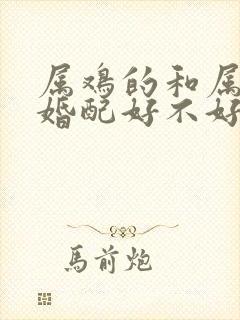 属鸡的和属
婚配好不好
馬前炮